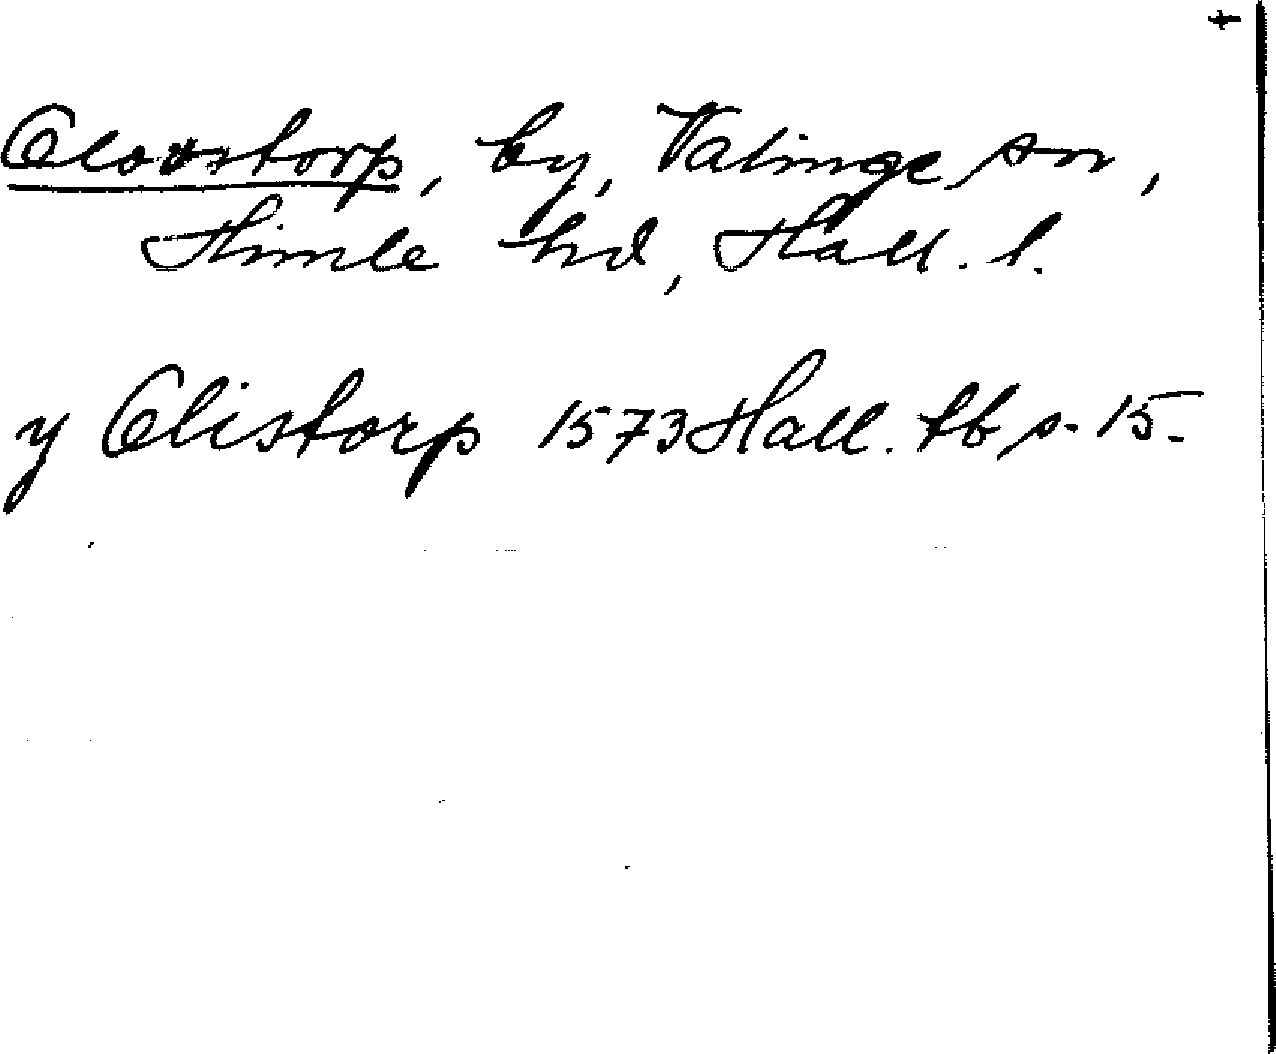 Clovstorp, by, Valinge sn,
Himle hd, Hall. l.
y Clistorp 1573 Hall. tb s. 15.